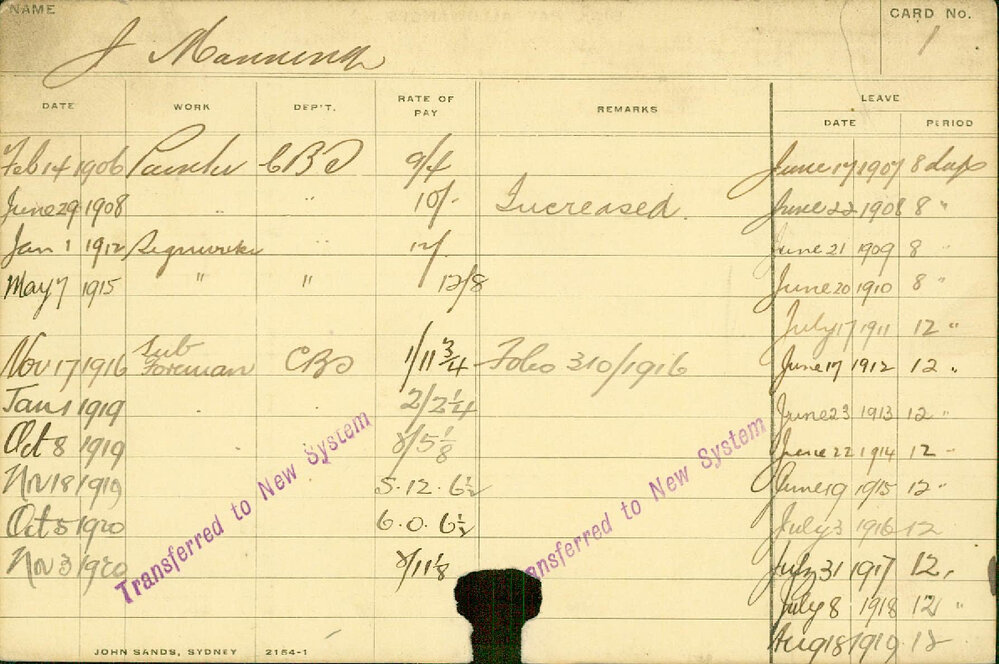 NAME
J Manning
CARD No.
1
DATE WORK DEP'T. RATE OF PAY REMARKS LEAVE
DATE PERIOD
Feb 14 1906 9/4 June 17 1907 8 days
June 29 1908 " 10/- Increased. June 22 1908 8 "
Jan 1 1912 " 12/ June 21 1909 8 "
May 7 1915 " " 12/8 June 20 1910 8 "
July 17 1911 12 "
Nov 17 1916 Sub Foreman 1/11 3/4 Folio 310/1916 June 17 1912 12 "
Jan 1 1919 2/2 1/4 June 23 1913 12 "
Oct 8 1919 2/5 1/8 June 22 1914 12 "
Nov 18 1919 5.12.6 1/2 June 19 1915 12 "
Oct 5 1920 6.0.6 1/2 July 3 1916 12
Nov 3 1920 2/11 1/8 July 31 1917 12 "
July 8 1918 12 "
Aug 18 1919 12
Transferred to New System
Transferred to New System
JOHN SANDS, SYDNEY 2154-1